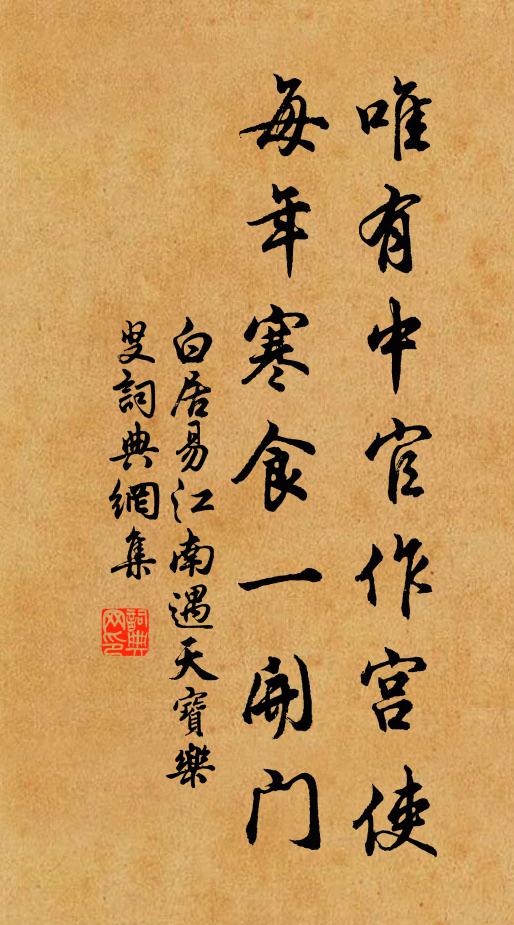 唯有中官作宫使
每年寒食一開門
白居易江南遇天寶樂
叟詞典網集
詞典
网印